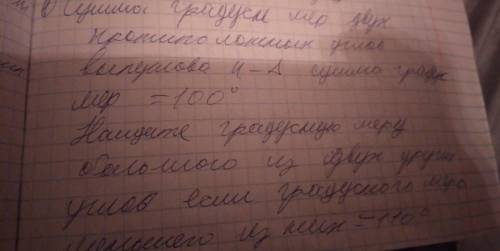 Сумма градусн мер двух
противоположных углов
выпуклова 4-А сумма градн
мер =100°
Найдите градусную меру
большого из двух других
углов если градусного мера
меньшего из них =110°